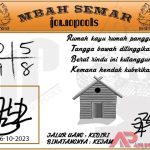 MBAH SEMAR
jonopools
0 5
1 8
Rumah kayu rumah panggu
Tangga bawah ditinggika
Berat rindu ini kutanggun
Kemana hendak kuberika
6-10-2023
JALUR GANG : KEDIRI
BINATANGNYA : KEJAM